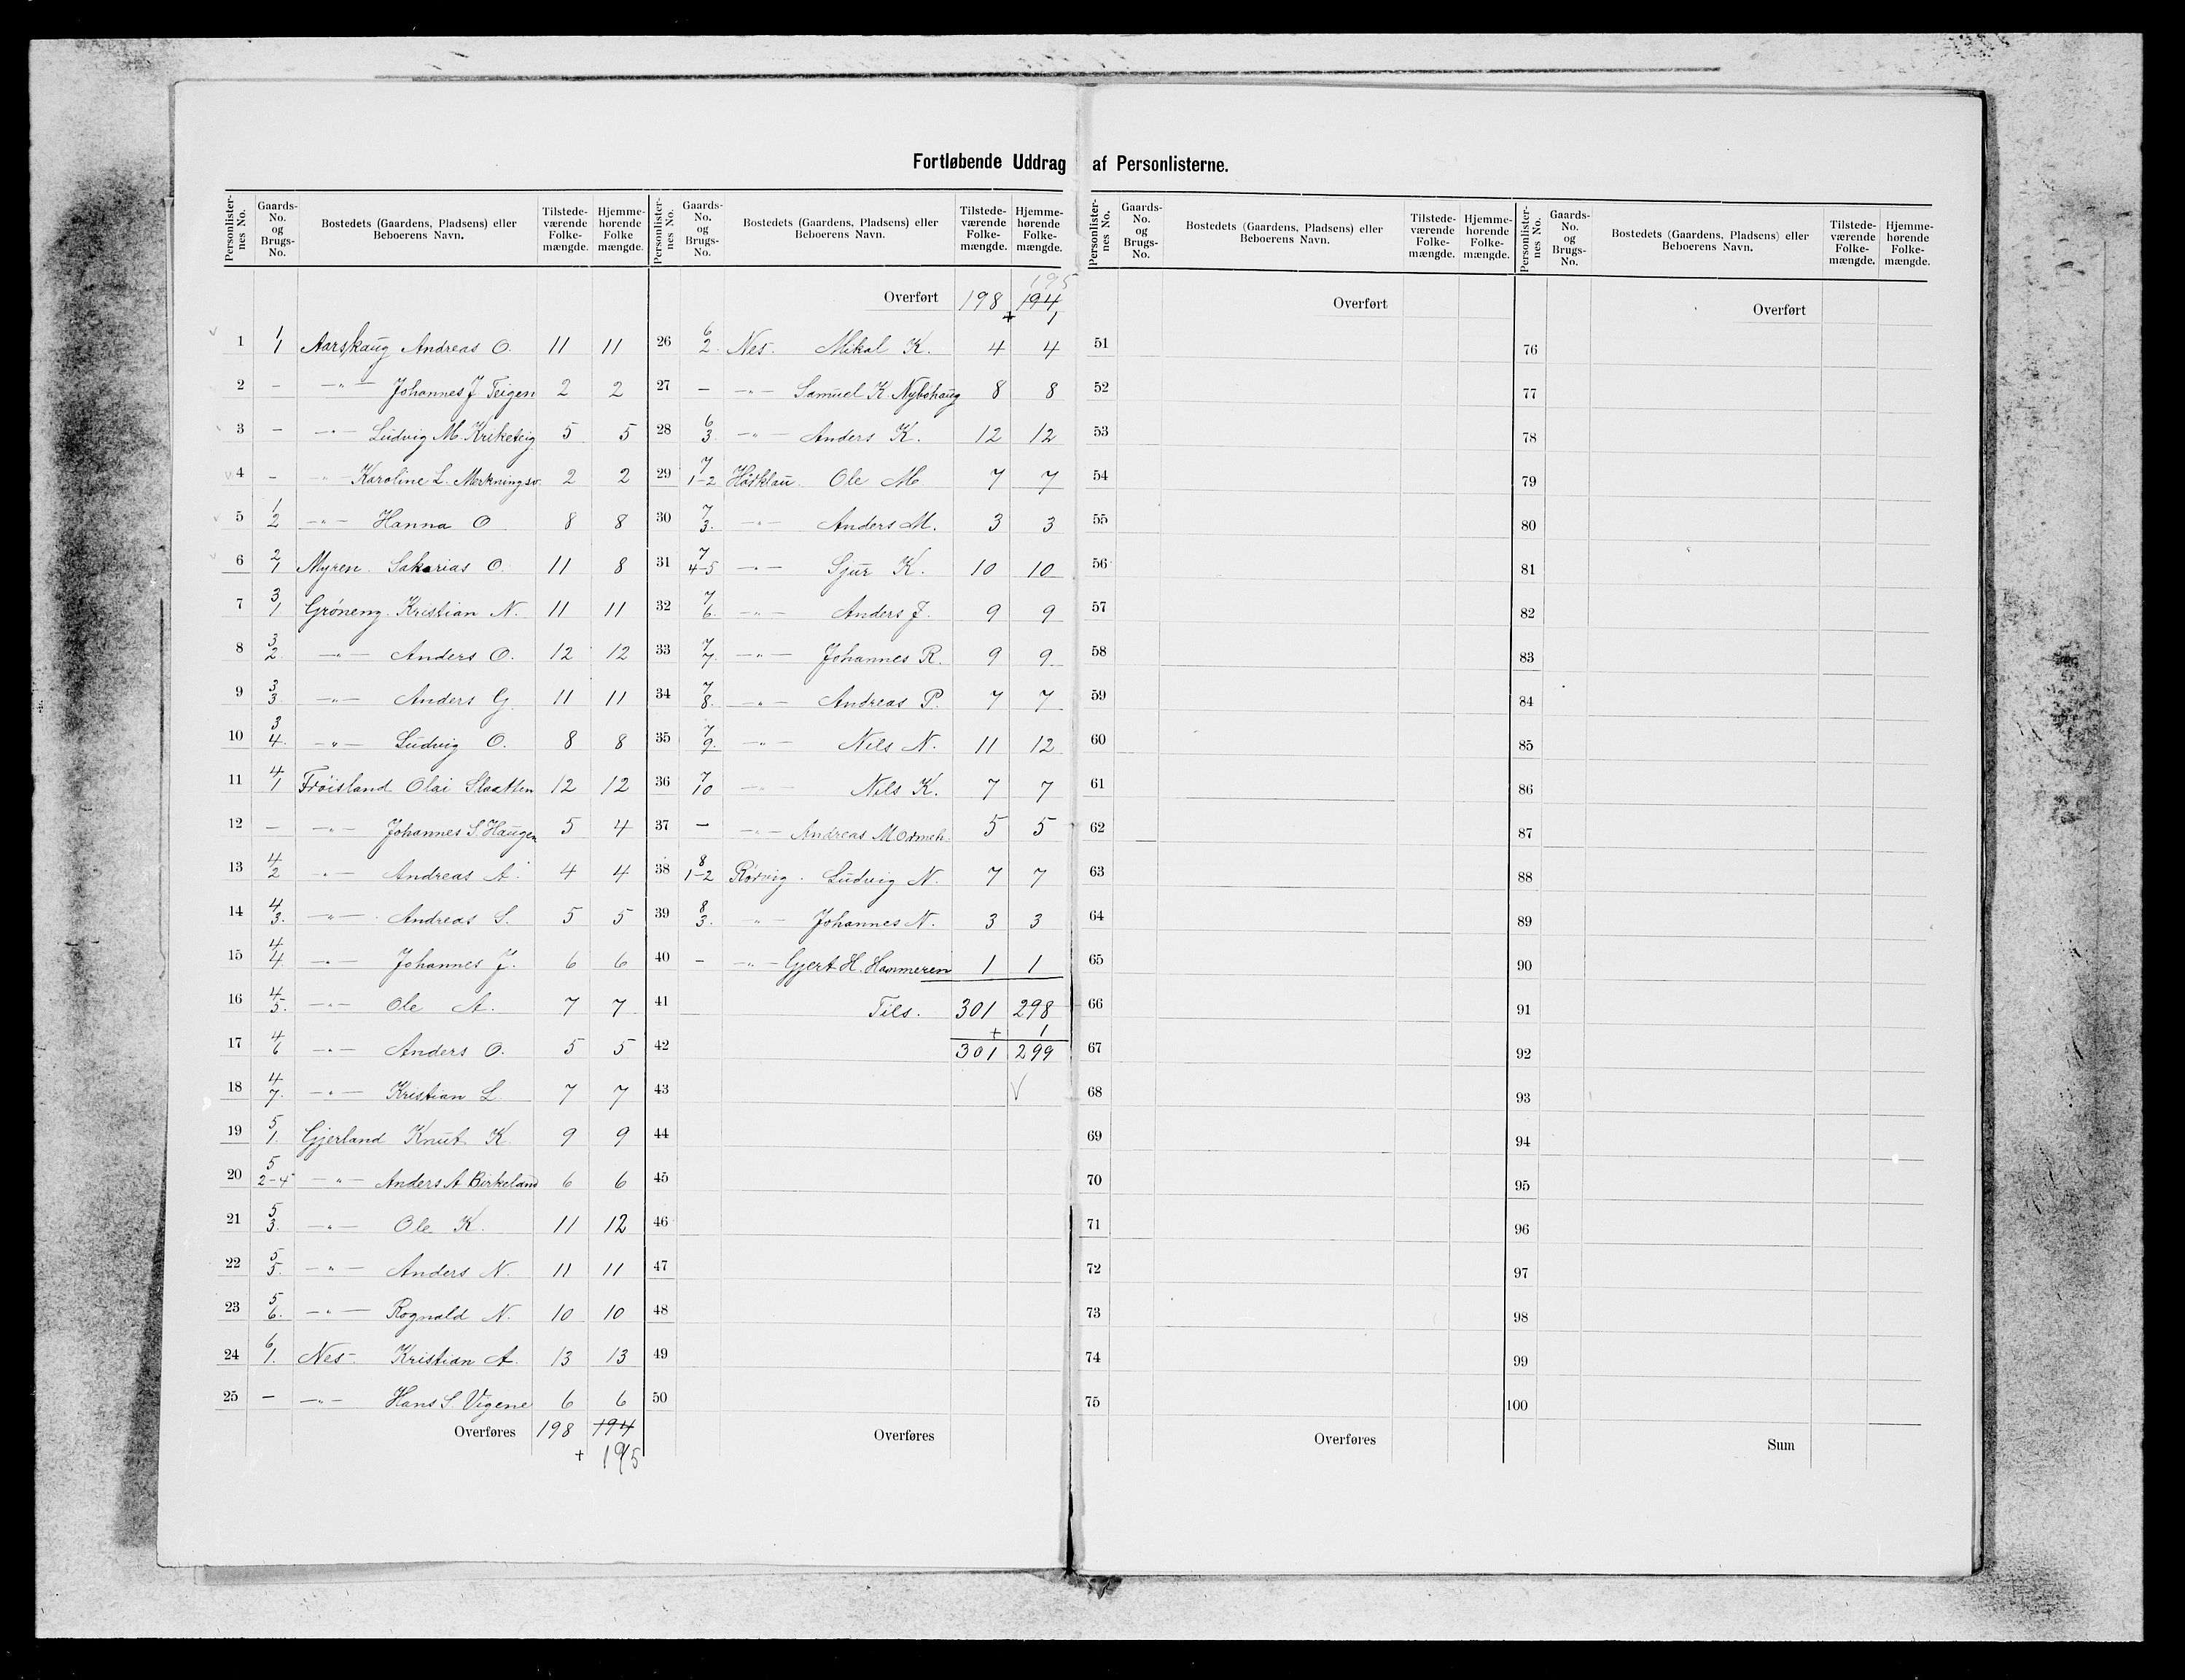 Fortløbende Uddrag af Personlisterne.
Personlister-nes No. Gaards-No. og Brugs-No. Bostedets (Gaardens, Pladsens) eller Beboerens Navn. Tilstede-værende Folke-mængde. Hjemme-hørende Folke mængde.
1 1/1 Aarskaug Andreas O. 11 11
2 - -"- Johannes J. Teigen 2 2
3 - -"- Ludvig M. Kriketeig 5 5
4 - -"- Karoline L. Merkningsv. 2 2
5 1/2 -"- Hanna O 8 8
6 2/1 Myren. Sakarias O. 11 8
7 3/1 Grøneng. Kristian N. 11 11
8 3/2. -"- Anders O. 12 12
9 3/3. -"- Anders G. 11 11
10 3/4. -"- Ludvig O. 8 8
11 4/1 Frøisland Olai Slaatten 12 12
12 - -"- Johannes S. Haugen 5 4
13 4/2 -"- Andreas A. 4 4
14 4/3. -"- Andreas S. 5 5
15 4/4. -"- Johannes J. 6 6
16 4/5. -"- Ole A. 7 7
17 4/6 -"- Anders O. 5 5
18 4/7. -"- Kristian L. 7 7
19 5/1. Gjerland Knut K. 9 9
20 5/2-4 -"- Anders A Birkeland 6 6
21 5/3. -"- Ole K. 11 12
22 5/5. -"- Anders N. 11 11
23 5/6. -"- Rognald N. 10 10
24 6/1. Nes. Kristian A. 13 13
25 - -"- Hans S. Vigene 6 6
Overføres 198 194
+ 195
Personlister-nes No. Gaards-No. og Brugs-No. Bostedets (Gaardens, Pladsens) eller Beboerens Navn. Tilstede-værende Folke-mængde. Hjemme-hørende Folke-mængde.
195
Overført 198 194
+ 1
26 6/2. Nes. Mikal K. 4 4
27 - -"- Samuel K. Nybøhaug 8 8
28 6/3. -"- Anders K. 12 12
29 7/1-2 Ole M 7 7
30 7/3. -"- Anders M. 3 3
31 7/4-5 -"- Sjur K. 10 10
32 7/6. -"- Anders J. 9 9
33 7/7. -"- Johannes R. 9 9
34 7/8. -"- Andreas P. 7 7
35 7/9. -"- Nils N. 11 12
36 7/10 -"- Nils K. 7 7
37 - -"- Andreas M 5 5
38 8/1-2 Rørvig. Ludvig N. 7 7
39 8/3. -"- Johannes N. 3 3
40 - -"- Gjert H. Hammeren 1 1
41 Tils. 301 298
+ 1
42 301 299
43
44
45
46
47
48
49
50
Overføres
Personlister-nes No. Gaards-No. og Brugs-No. Bostedets (Gaardens, Pladsens) eller Beboerens Navn. Tilstede-værende Folke-mængde. Hjemme-hørende Folke-mængde.
Overført
51
52
53
54
55
56
57
58
59
60
61
62
63
64
65
66
67
68
69
70
71
72
73
74
75
Overføres
Personlister-nes No. Gaards-No. og Brugs-No. Bostedets (Gaardens, Pladsens) eller Beboerens Navn. Tilstede-værende Folke-mængde. Hjemme-hørende Folke-mængde.
Overført
76
77
78
79
80
81
82
83
84
85
86
87
88
89
90
91
92
93
94
95
96
97
98
99
100
Sum